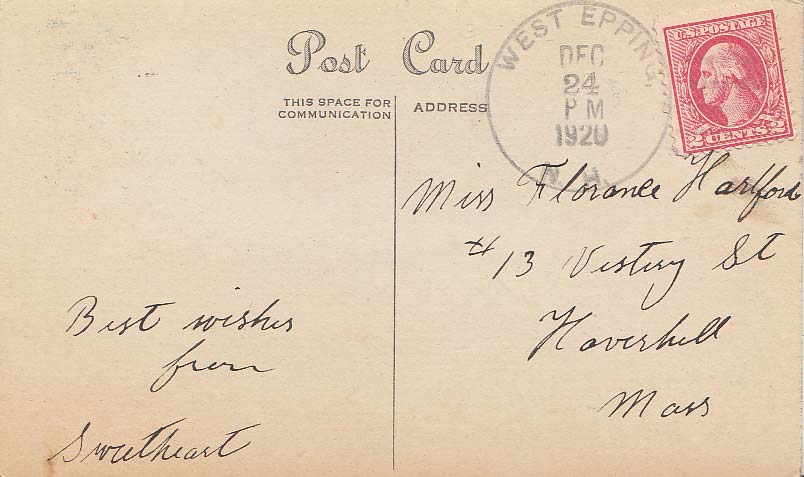 Post Card
THIS SPACE FOR
COMMUNICATION
ADDRESS
WEST EPPING,
DEC
24
PM
1920
N.H.
U.S. POSTAGE
2 CENTS 2
Miss Florance Hartford
# 13 Vestery St
Haverhill
Mass
Best wishes
from
Sweetheart